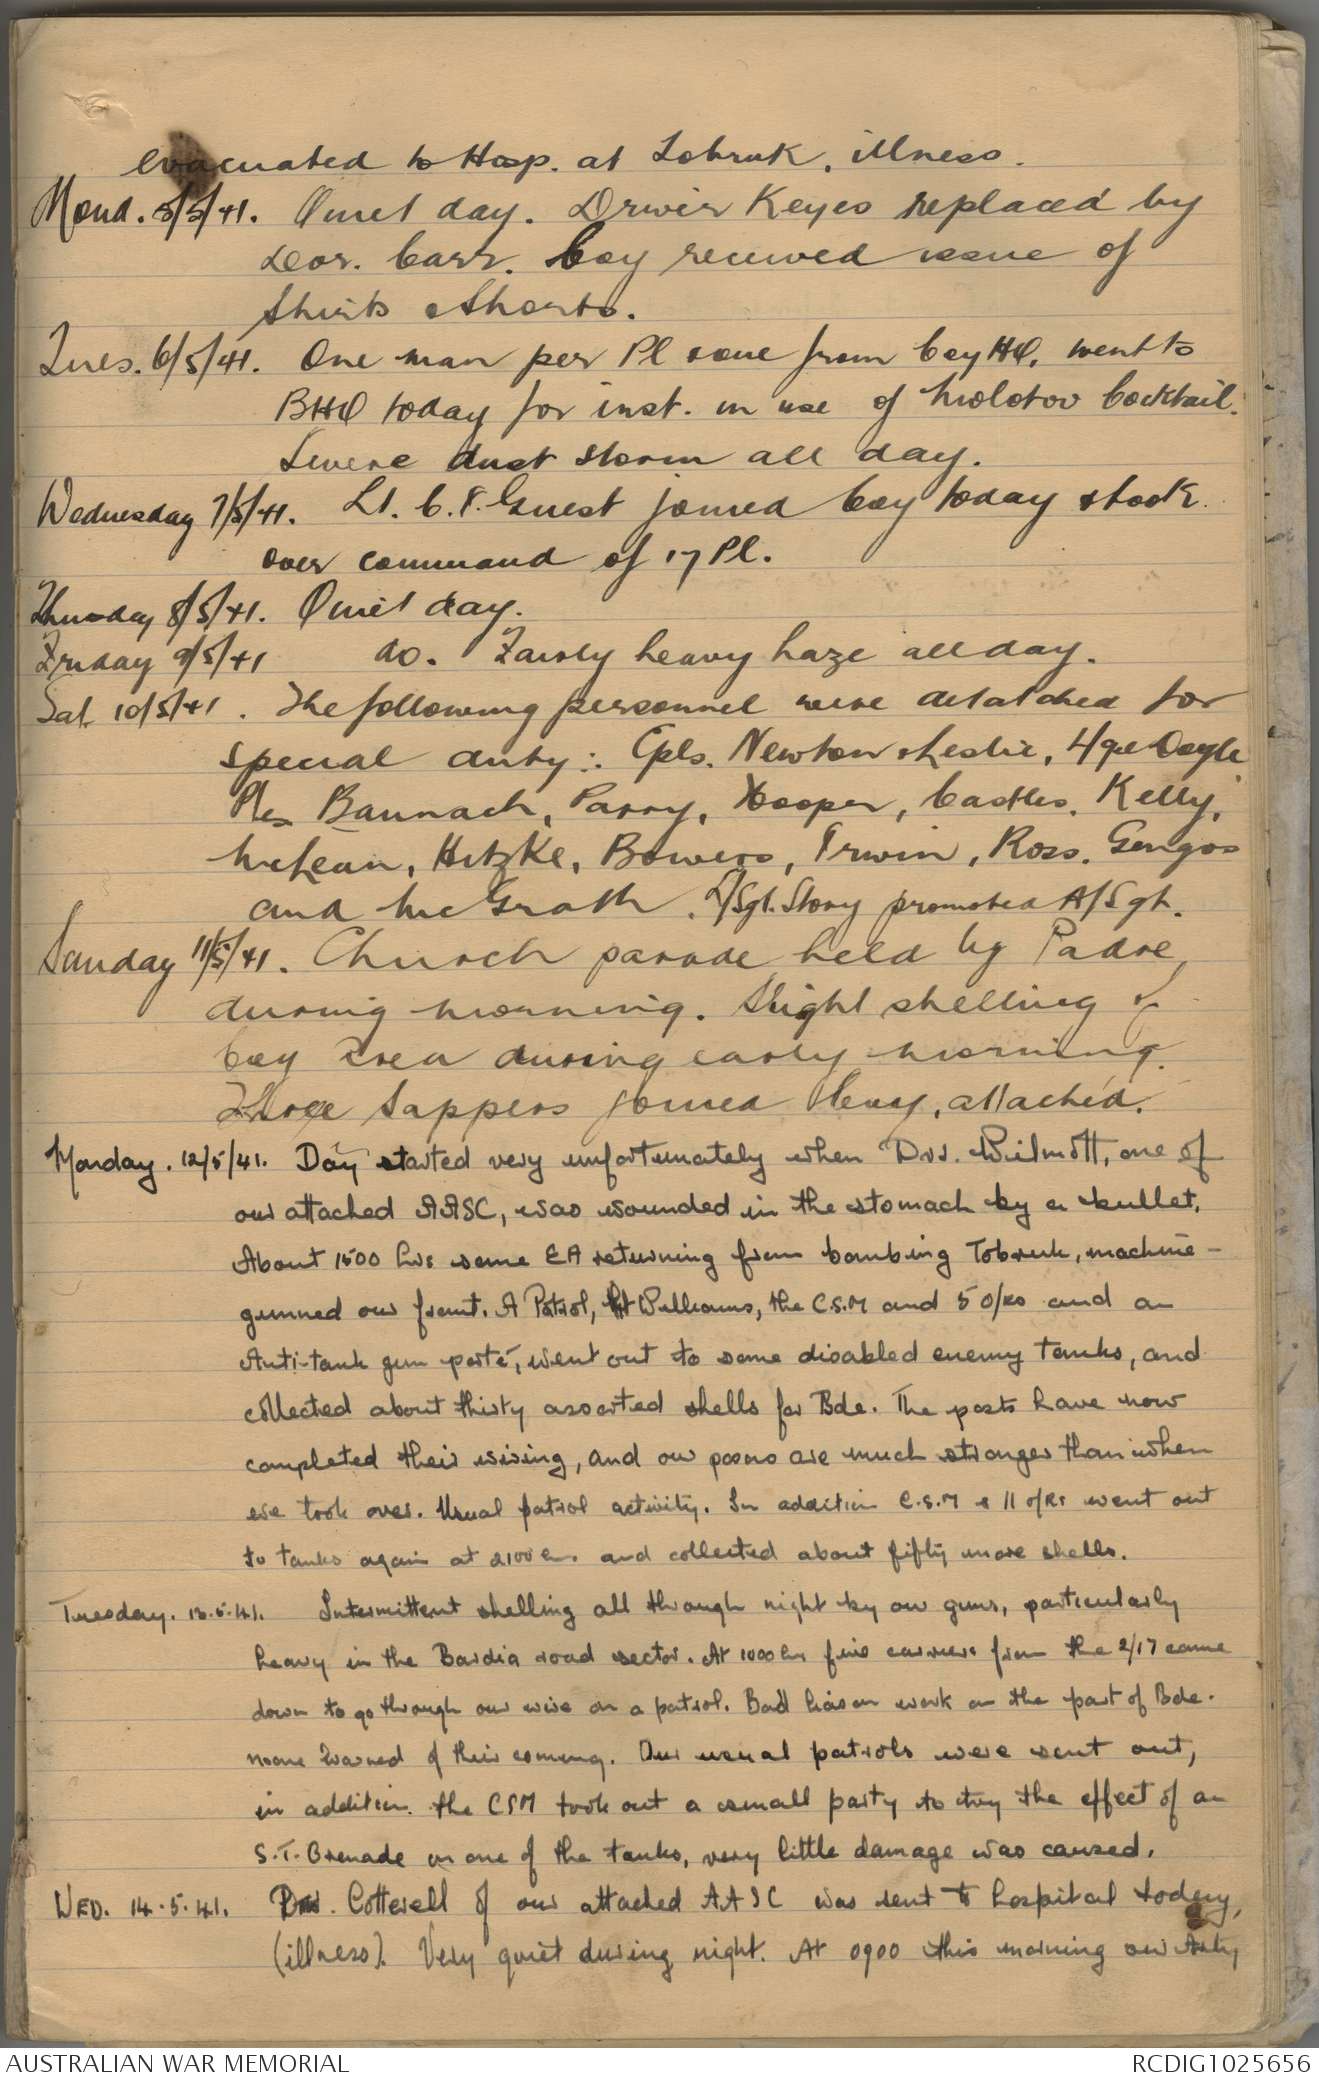 evacuated to Hosp. at Tobruk, illness.
Mond. 5/5/41. Quiet day. Driver Keyes replaced by
Dvr. Carr. Coy received issue of
Shirts & Shorts.
Tues. 6/5/41. One man per Pl & one from Coy HQ, went to
BHQ today for inst. in use of Molotov Cocktail.
Severe dust storm all day.
Wednesday 7/5/41. Lt. C.F. Guest joined Coy today & took
over command of 17 Pl.
Thursday 8/5/41. Quiet day.
Friday 9/5/41 do. Fairly heavy haze all day.
Sat 10/5/41. The following personnel were detatched for
special duty:. Cpls. Newton & Leslie, Doyle
Ptes Baunach, Parry, Hooper, Castles, Kelly,
McLean, Hitzke, Bowers, Irwin, Ross,
and McGrath. L/Sgt. Story promoted A/Sgt.
Sunday 11/5/41. Church parade held by Padre,
during morning. Slight shelling of
Coy area during early morning.
Three Sappers joined Coy, attached.
Monday. 12/5/41. Day started very unfortunately when Dvr. Wilmott, one of
our attached AASC, was wounded in the stomach by a bullet.
About 1500 hrs some EA returning from bombing Tobruk, machine-
gunned our front. A Patrol, Lt Williams, the C.S.M and 5 O/Rs and an
Anti-tank gun party, went out to some disabled enemy tanks, and
collected about thirty assorted shells for Bde. The posts have now
completed their wiring, and our posns are much stronger than when
we took over. Usual patrol activity. In addition C.S.M & 11 O/Rs went out
to tanks again at 2100 hrs and collected about fifty more shells.
Tuesday. 13.5.41. Intermittent shelling all through night by our guns, particularly
heavy in the Bardia road sector. At 1000 hrs five carriers from the 2/17 came
down to go through our wire on a patrol. Bad liaison work on the part of Bde.
noone warned of their coming. Our usual patrols were sent out,
in addition the CSM took out a small party to try the effect of an
S.T. Grenade on one of the tanks, very little damage was caused.
WED. 14.5.41. Dvr. Cotterell of our attached AASC was sent to hospital today,
(illness). Very quiet during night. At 0900 this morning our Arty
AUSTRALIAN WAR MEMORIAL
RCDIG1025656